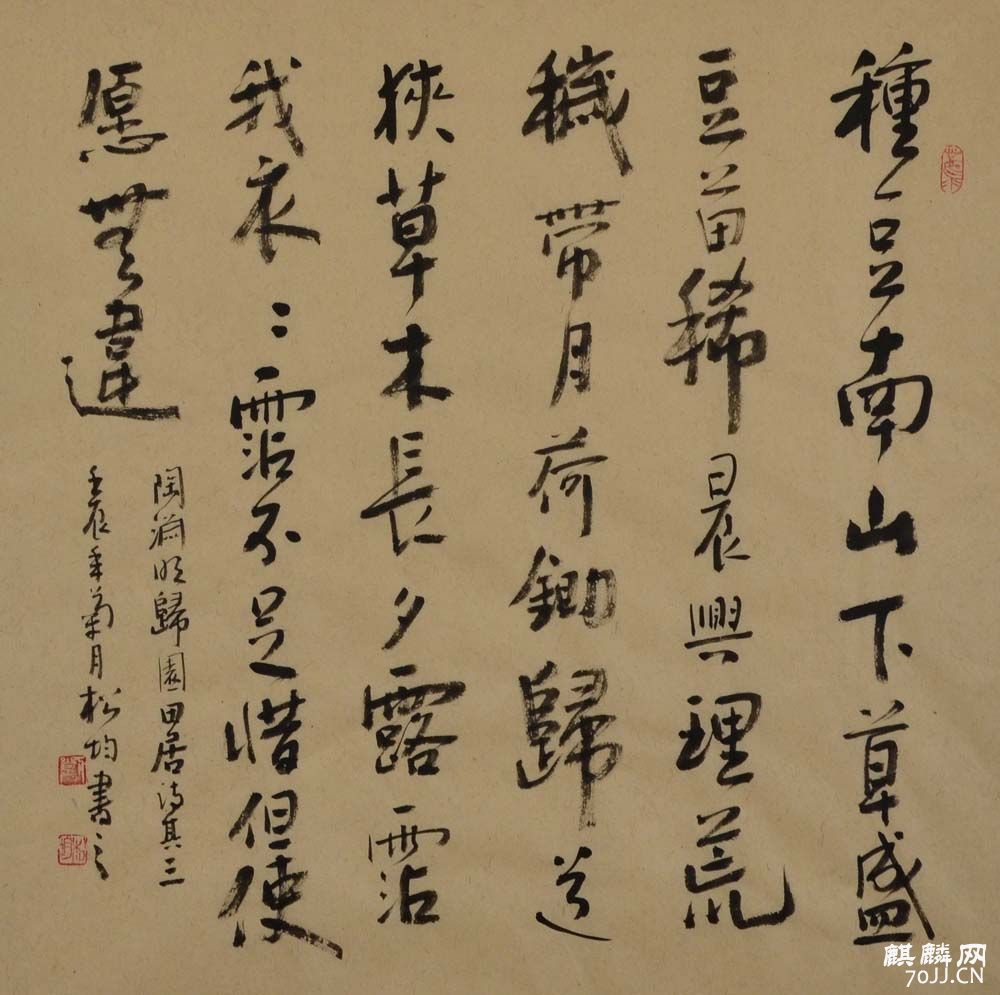 種豆南山下草盛
豆苗稀晨興理荒
穢帶月荷鋤歸道
狹草木長夕露霑
我衣衣霑不足惜但使
愿無違
陶淵明歸園田居詩其三
壬辰年菊月松均書之
麒麟网
70JJ.CN